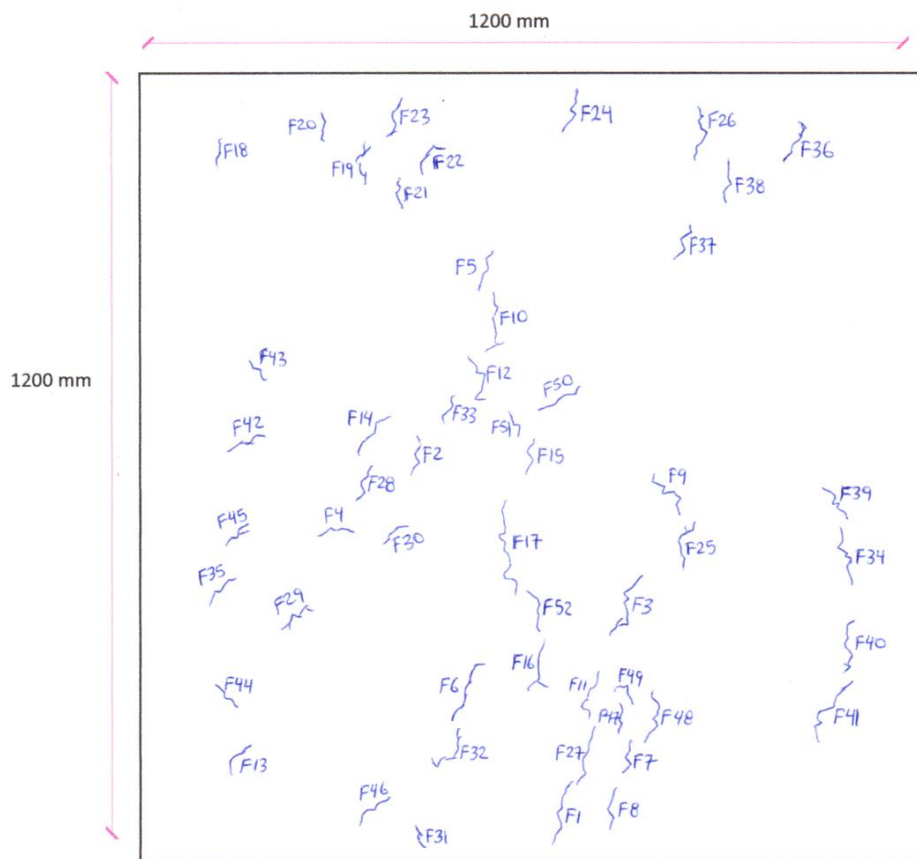 1200 mm
1200 mm
F24
F23
F20
F26
F36
F18
F19
F22
F38
F21
F37
F5
F10
F43
F12
F50
F14
F33
F42
F51
F2
F15
F28
F9
F39
F45
F4
F30
F17
F25
F34
F35
F29
F52
F3
F40
F16
F6
F11
F49
F44
F47
F48
F41
F32
F27
F7
F13
F46
F1
F8
F31